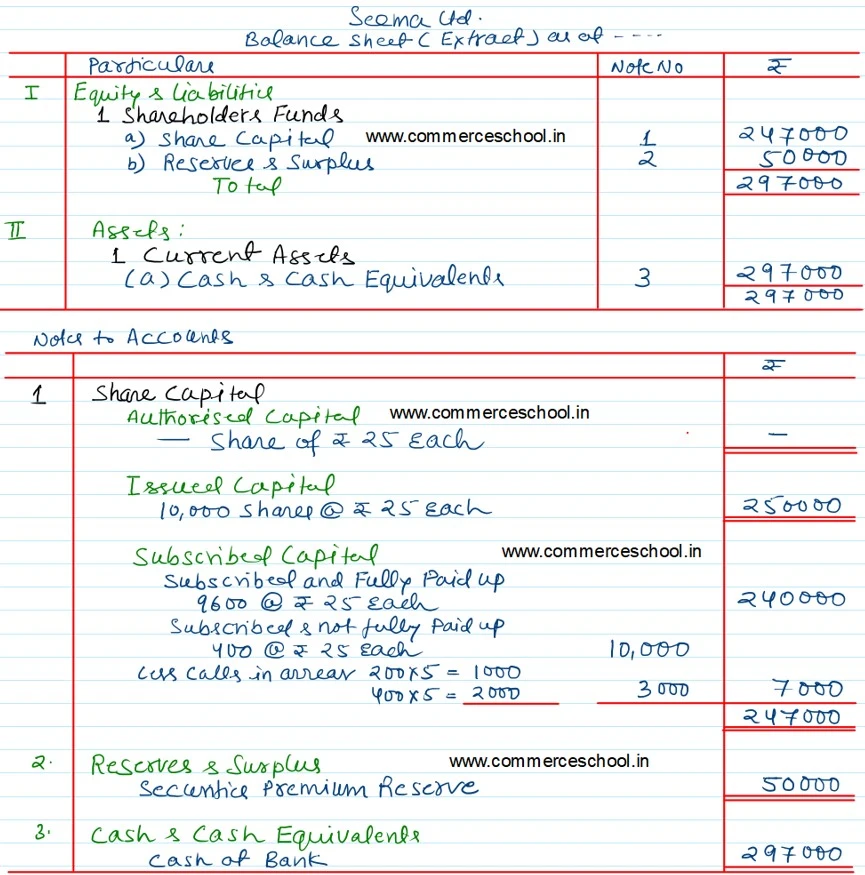 Seema Ltd.
Balance Sheet (Extract) as at ----
Particulars Note No ₹
I Equity & Liabilities
1 Shareholders Funds
a) Share Capital www.commerceschool.in 1 247000
b) Reserves & Surplus 2 50000
Total 297000
II Assets:
1 Current Assets
(a) Cash & Cash Equivalents 3 297000
297000
Notes to Accounts
₹
1 Share Capital
Authorised Capital www.commerceschool.in
— Share of ₹ 25 Each —
Issued Capital
10,000 Shares @ ₹ 25 Each 250000
Subscribed Capital www.commerceschool.in
Subscribed and Fully Paid up
9600 @ ₹ 25 Each 240000
Subscribed & not fully Paid up
400 @ ₹ 25 Each 10,000
Less Calls in arrear 200x5 = 1000
400x5 = 2000 3000 7000
247000
2. Reserves & Surplus www.commerceschool.in
Securities Premium Reserve 50000
3. Cash & Cash Equivalents
Cash at Bank 297000